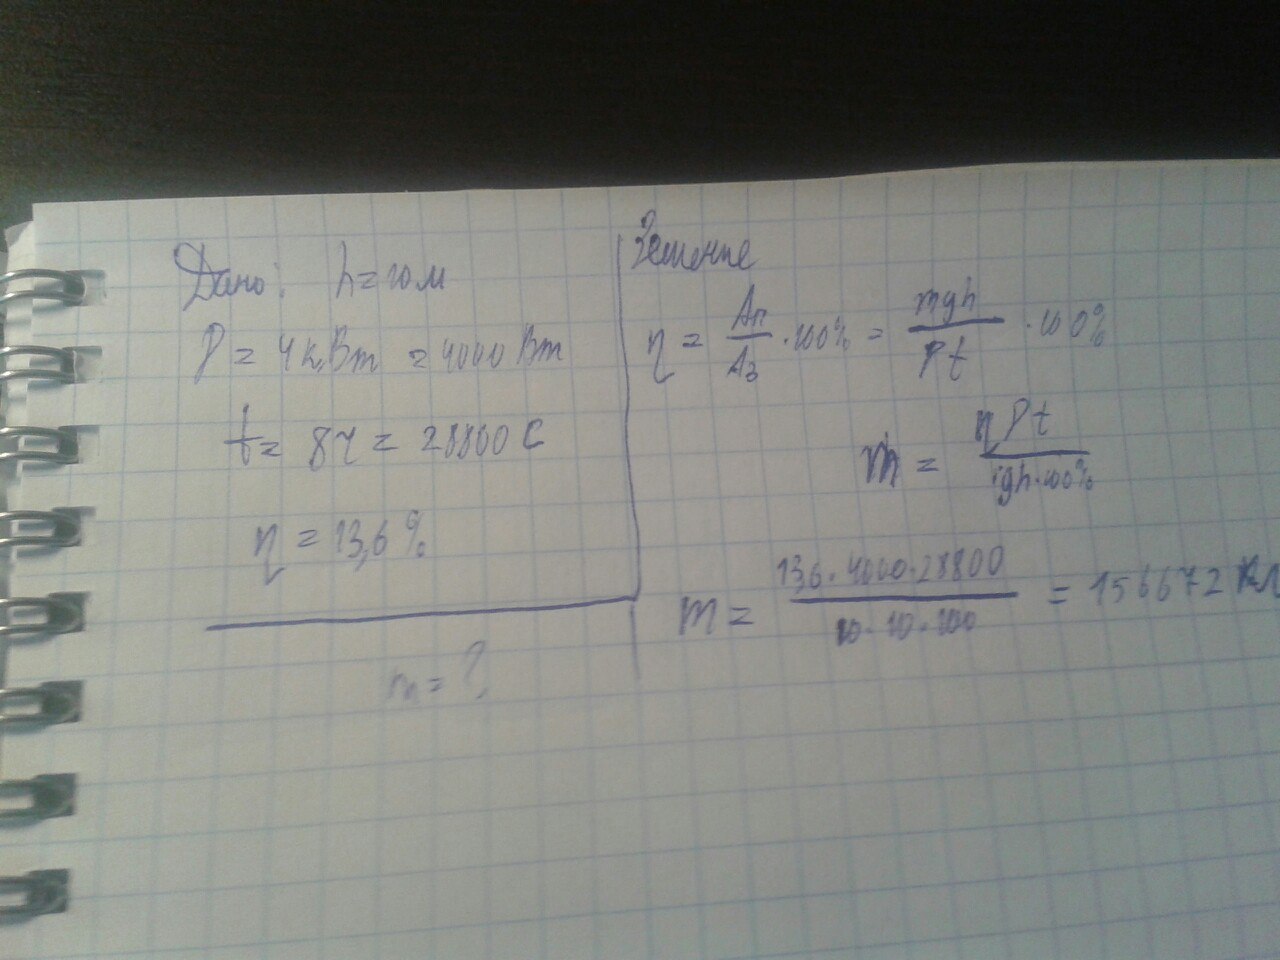 Дано: h = 10 м
P = 4 кВт = 4000 Вт
t = 8ч = 28800 С
η = 13,6 %
m = ?
Решение
η = Aп/Aз · 100% = mgh/Pt · 100%
m = ηPt/gh·100%
m = 13,6 · 4000 · 28800/10 · 10 · 100 = 156672 кг